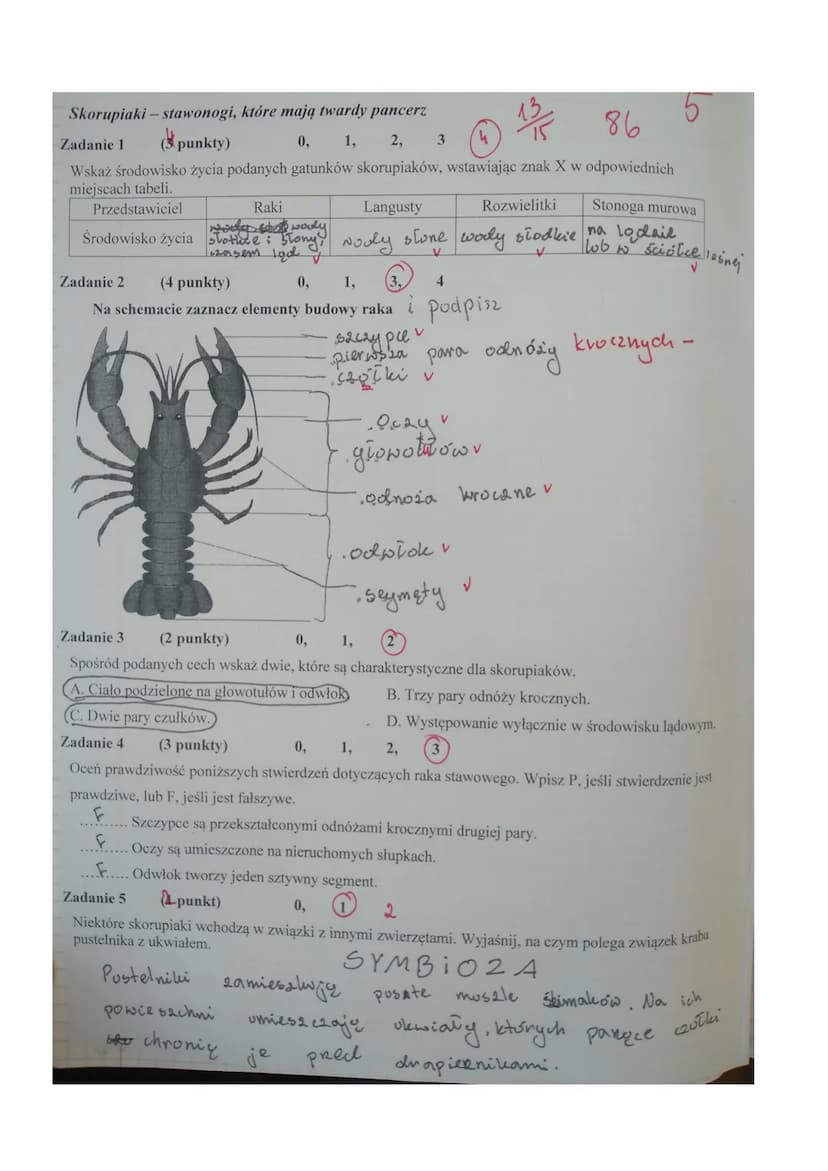 Skorupiaki – stawonogi, które mają twardy pancerz
13/15 86 5
Zadanie 1 (4 punkty) 0, 1, 2, 3 4
Wskaż środowisko życia podanych gatunków skorupiaków, wstawiając znak X w odpowiednich
miejscach tabeli.
Przedstawiciel Raki Langusty Rozwielitki Stonoga murowa
Środowisko życia wody słodkie i słony, czasem ląd wody słone wody słodkie na lądzie lub w ściółce leśnej
Zadanie 2 (4 punkty) 0, 1, 3, 4
Na schemacie zaznacz elementy budowy raka i podpisz
szczypce
pierwsza para odnóży krocznych –
czółki
oczy
głowotułów
odnóża kroczne
odwłok
segmęty
Zadanie 3 (2 punkty) 0, 1, 2
Spośród podanych cech wskaż dwie, które są charakterystyczne dla skorupiaków.
A. Ciało podzielone na głowotułów i odwłok. B. Trzy pary odnóży krocznych.
C. Dwie pary czułków. D. Występowanie wyłącznie w środowisku lądowym.
Zadanie 4 (3 punkty) 0, 1, 2, 3
Oceń prawdziwość poniższych stwierdzeń dotyczących raka stawowego. Wpisz P, jeśli stwierdzenie jest
prawdziwe, lub F, jeśli jest fałszywe.
F Szczypce są przekształconymi odnóżami krocznymi drugiej pary.
F Oczy są umieszczone na nieruchomych słupkach.
F Odwłok tworzy jeden sztywny segment.
Zadanie 5 (2 punkt) 0, 1 2
Niektóre skorupiaki wchodzą w związki z innymi zwierzętami. Wyjaśnij, na czym polega związek kraba
pustelnika z ukwiałem.
SYMBIOZA
Pustelniki zamieszkują puste muszle ślimaków. Na ich
powierzchni umieszczają ukwiały, których parzące czółki
chronią je przed drapieżnikami.